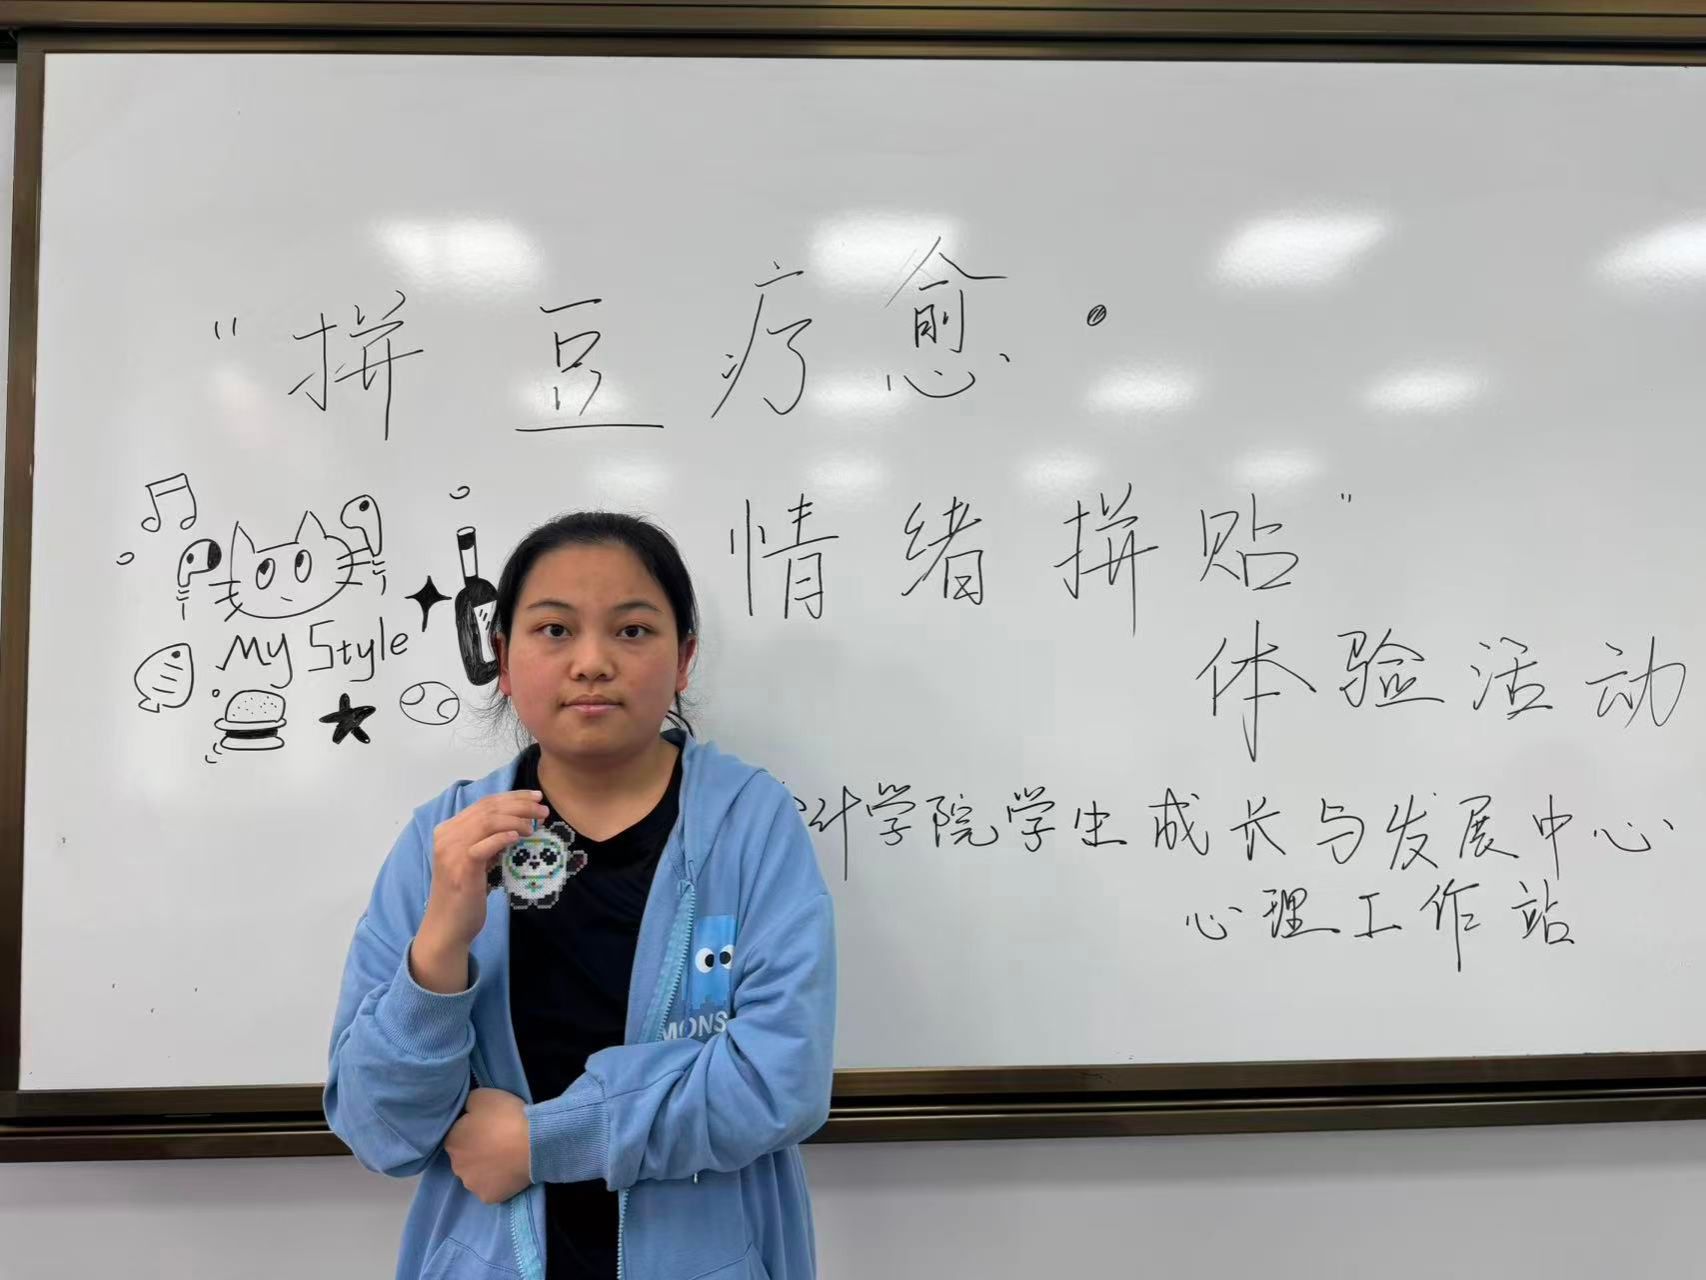 “拼豆疗愈·
情绪拼贴”
My Style
体验活动
计学院学生成长与发展中心
心理工作站
MONS